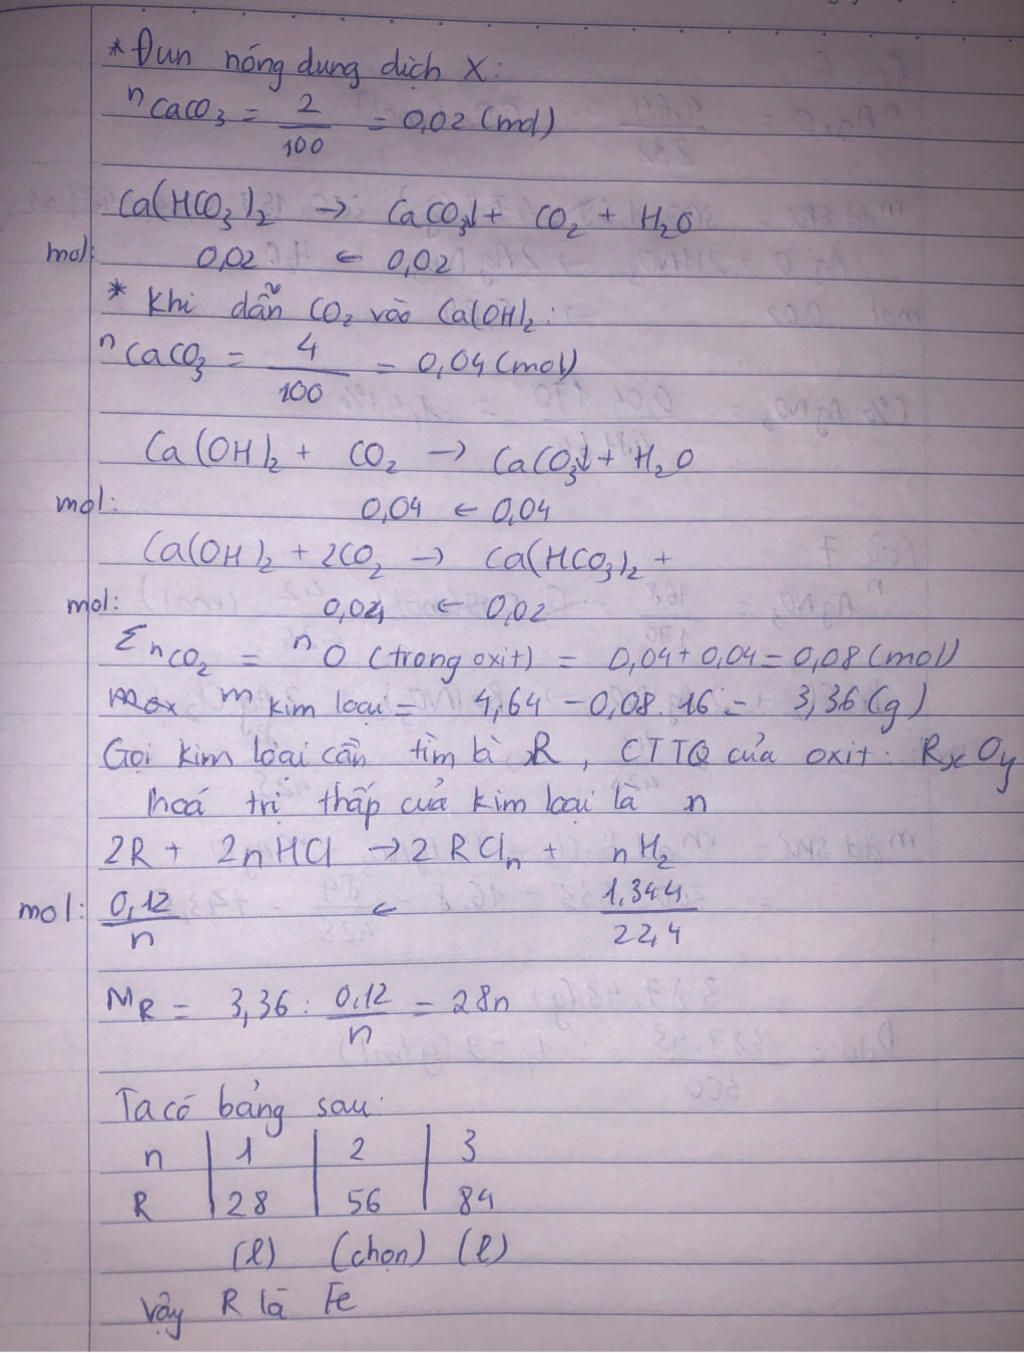 * Đun nóng dung dịch X:
nCaCO3 = 2/100 = 0,02 (mol)
Ca(HCO3)2 → CaCO3↓ + CO2 + H2O
mol: 0,02 ← 0,02
* Khi dẫn CO2 vào Ca(OH)2:
nCaCO3 = 4/100 = 0,04 (mol)
Ca(OH)2 + CO2 → CaCO3↓ + H2O
mol: 0,04 ← 0,04
Ca(OH)2 + 2CO2 → Ca(HCO3)2 +
mol: 0,04 ← 0,02
ΣnCO2 = nO (trong oxit) = 0,04 + 0,04 = 0,08 (mol)
m kim loại = 4,64 - 0,08.16 = 3,36 (g)
Gọi kim loại cần tìm là R, CTTQ của oxit: RxOy
hoá trị thấp của kim loại là n
2R + 2nHCl → 2RCln + nH2
mol: 0,12/n ← 1,344/22,4
MR = 3,36 : 0,12/n = 28n
Ta có bảng sau:
n | 1 | 2 | 3
R | 28 | 56 | 84
(l) (chọn) (l)
Vậy R là Fe